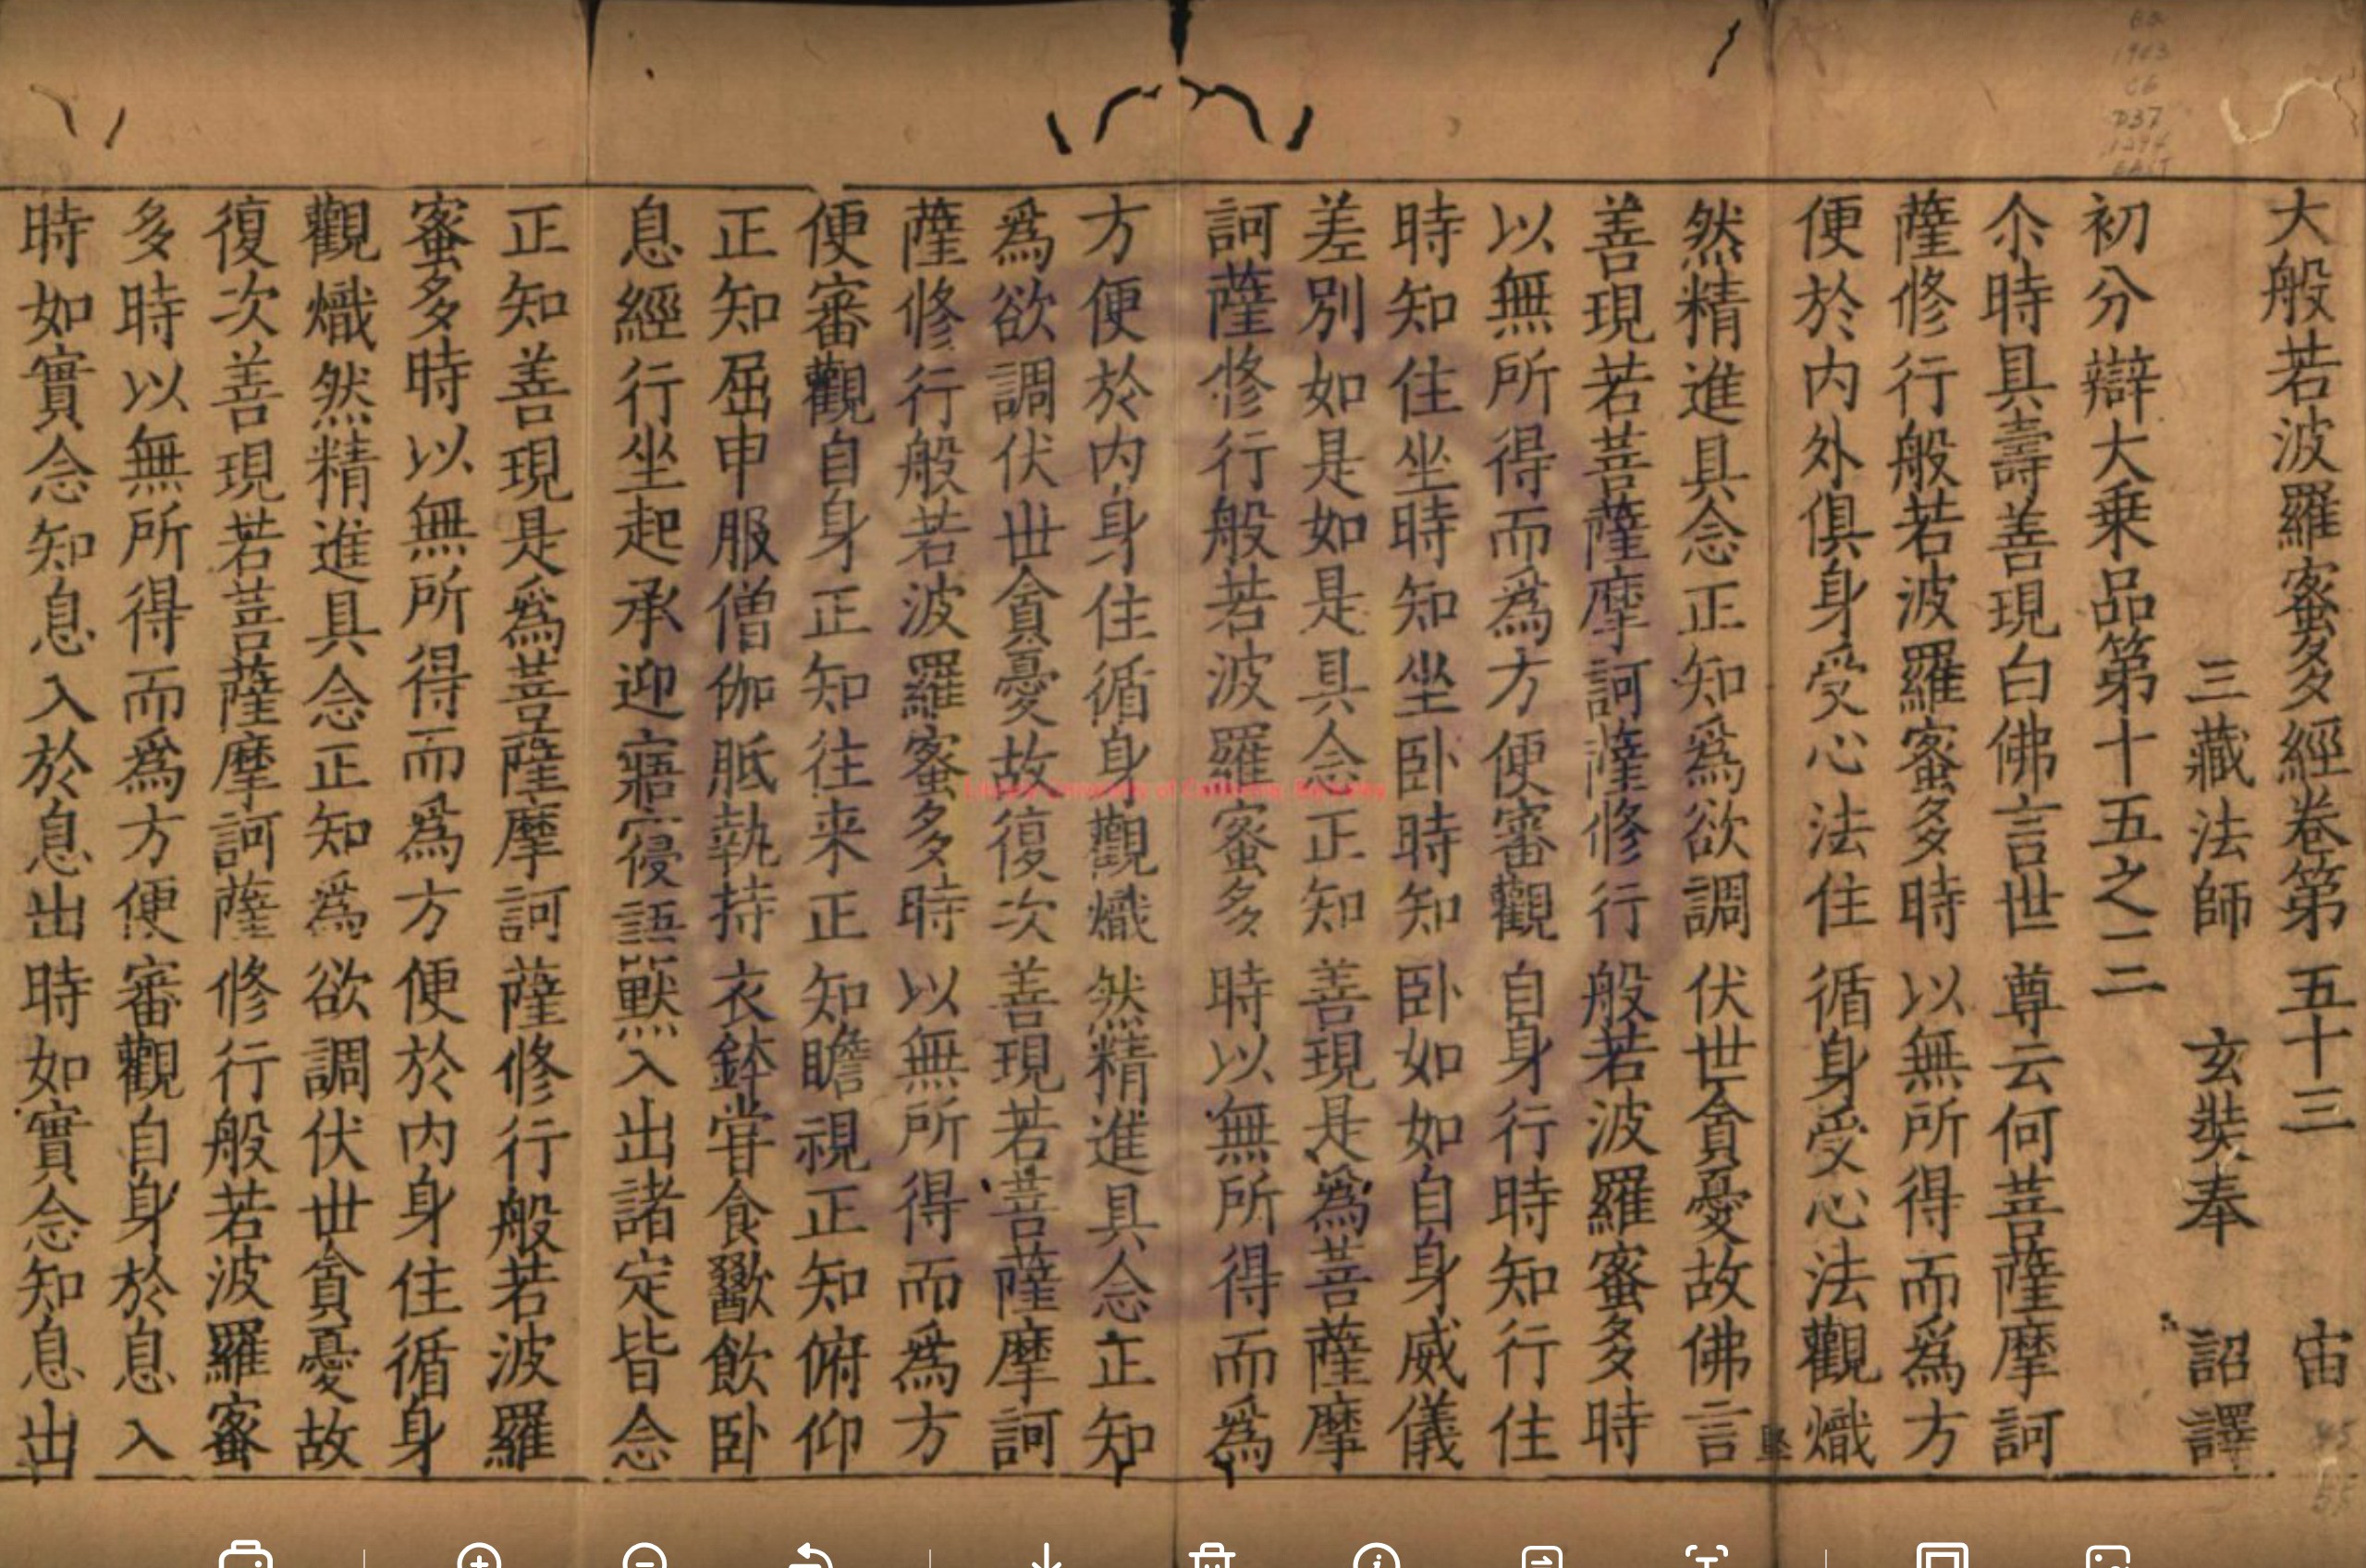 大般若波羅蜜多經卷第五十三 宙
三藏法師 玄奘奉 詔譯
初分辯大乗品第十五之二
尒時具壽善現白佛言世尊云何菩薩摩訶
薩修行般若波羅蜜多時以無所得而爲方
便於内外俱身受心法住循身受心法觀熾
然精進具念正知爲欲調伏世貪憂故佛言
善現若菩薩摩訶薩修行般若波羅蜜多時
以無所得而爲方便審觀自身行時知行住
時知住坐時知坐卧時知卧如如自身威儀
差別如是如是具念正知善現是爲菩薩摩
訶薩修行般若波羅蜜多時以無所得而爲
方便於内身住循身觀熾然精進具念正知
爲欲調伏世貪憂故復次善現若菩薩摩訶
薩修行般若波羅蜜多時以無所得而爲方
便審觀自身正知往来正知瞻視正知俯仰
正知屈申服僧伽胝執持衣鉢甞食歠飲卧
息經行坐起承迎寤寑語默入出諸定皆念
正知善現是爲菩薩摩訶薩修行般若波羅
蜜多時以無所得而爲方便於内身住循身
觀熾然精進具念正知爲欲調伏世貪憂故
復次善現若菩薩摩訶薩修行般若波羅蜜
多時以無所得而爲方便審觀自身於息入
時如實念知息入於息出時如實念知息出
Library University of California, Berkeley